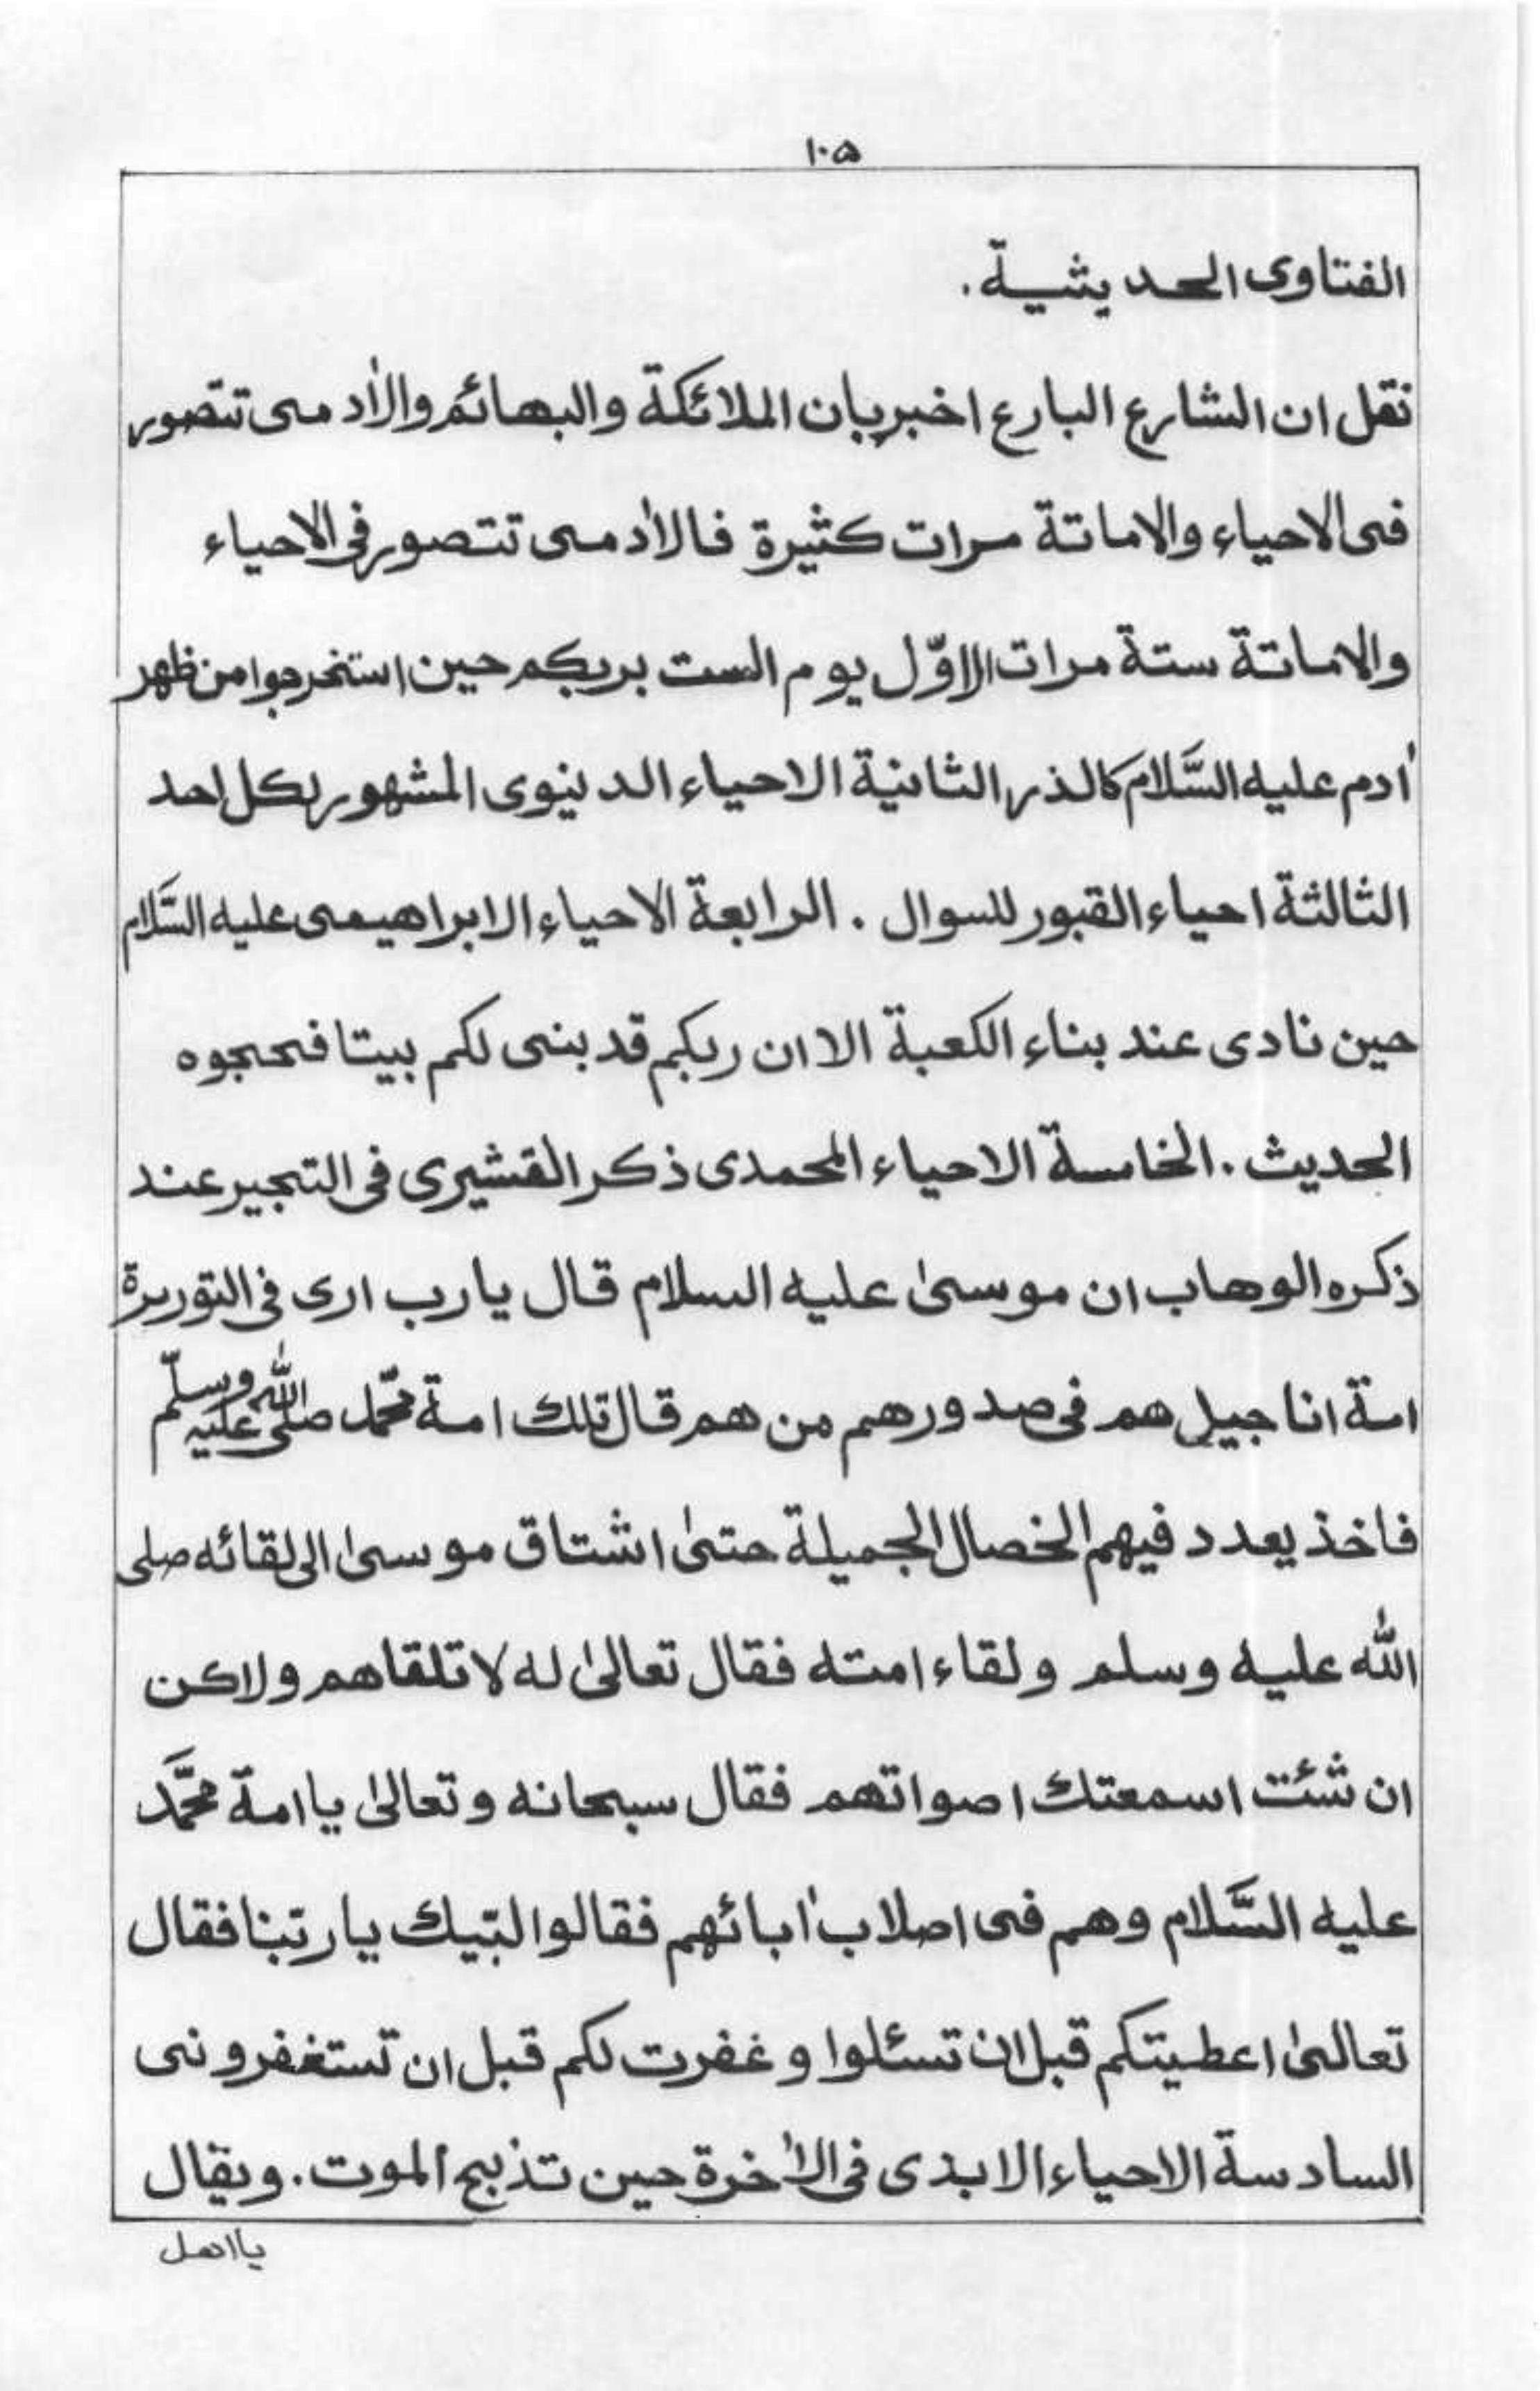 ١٠۵
الفتاوى الحديثية.
نقل ان الشارع البارع اخبربان الملائكة والبهائم والاٰدمى تتصور
فى الاحياء والاماتة مرات كثيرة فالاٰدمى تتصور فى الاحياء
والاماتة ستة مرات الاوّل يوم الست بربكم حين استخرجوا من ظهر
اٰدم عليه السَّلام كالذر الثانية الاحياء الدينوى المشهور لكل احد
الثالثة احياء القبور للسوال . الرابعة الاحياء الابراهيمى عليه السَّلام
حين نادى عند بناء الكعبة الا ان ربكم قد بنى لكم بيتا فحجوه
الحديث . الخامسة الاحياء المحمدى ذكر القشيرى فى التبحير عند
ذكره الوهاب ان موسىٰ عليه السلام قال يارب ارى فى التورىة
امة اناجيل هم فى صدورهم من هم قال تلك امة محمّد صلى الله عليه وسلّم
فاخذ يعدد فيهم الخصال الجميلة حتىٰ اشتاق موسىٰ الى لقائه صلى
الله عليه وسلم ولقاء امته فقال تعالىٰ له لا تلقاهم ولاكن
ان شئت اسمعتك اصواتهم فقال سبحانه وتعالىٰ يا امة محمَّد
عليه السَّلام وهم فى اصلاب اٰبائهم فقالوا لبّيك يا ربّنا فقال
تعالىٰ اعطيتكم قبل ان تسئلوا و غفرت لكم قبل ان تستغفرونى
السادسة الاحياء الابدى فى الاٰخرة حين تذبح الموت . ويقال
يا اهل